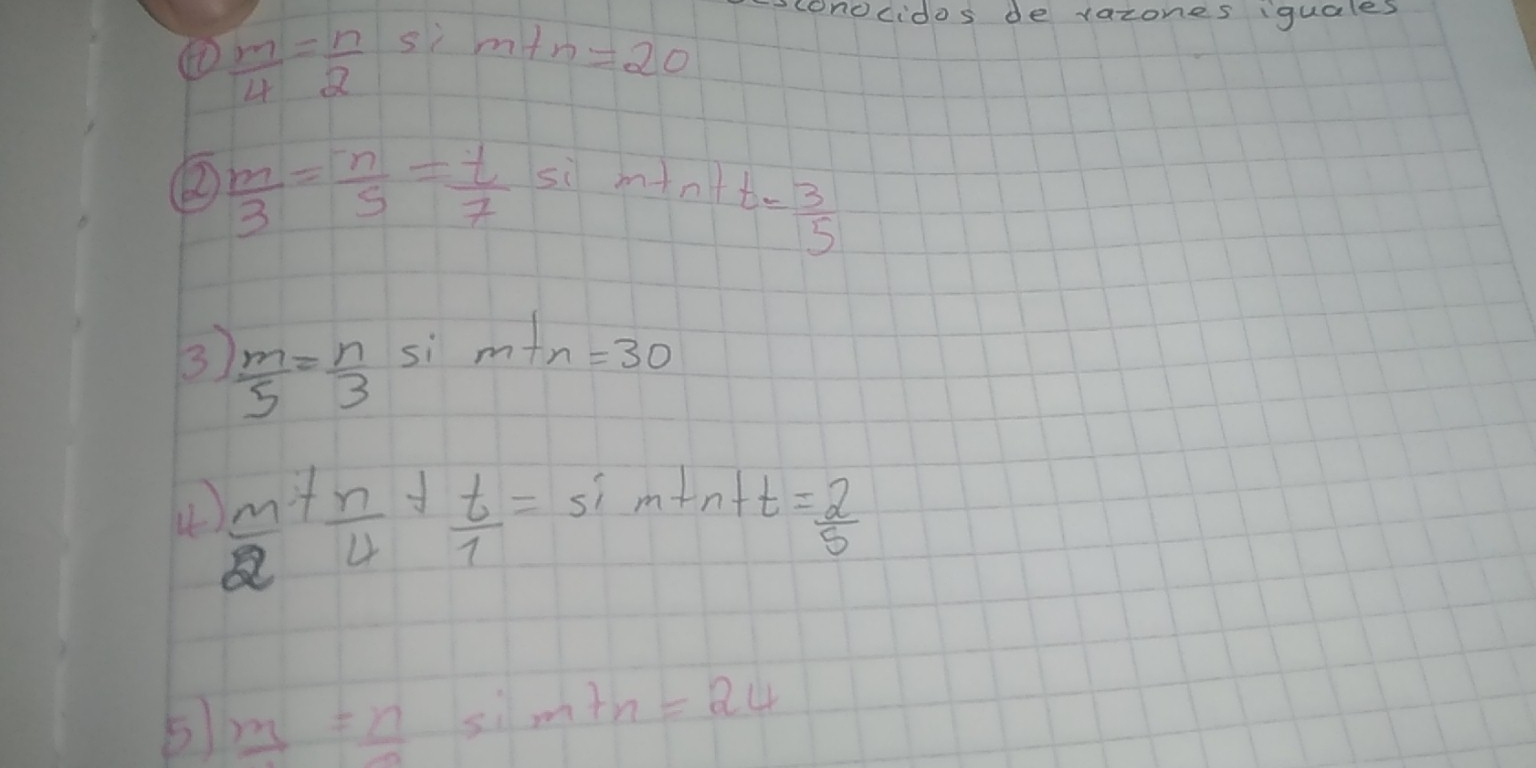 conocidos de razones iguales
1) m/4 = n/2 si m+n=20
2) m/3 = n/5 = t/7 si m+n+t=3/5
3) m/5 = n/3 si m+n=30
4) m/2 + n/4 + t/1 = si m+n+t=2/5
5) m = n si m+n=24